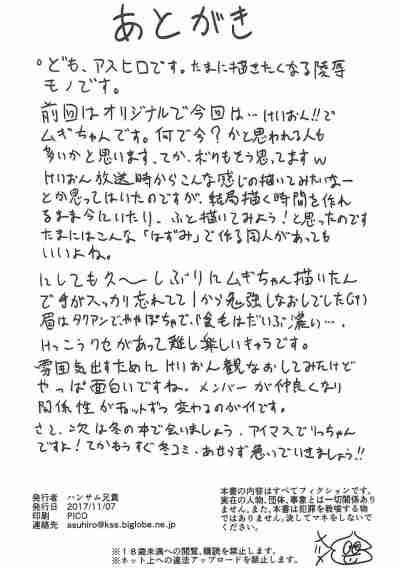 あとがき
°ども、アスヒロです。たまに描きたくなる陵辱
モノです。
前回はオリジナルで今回は…けいおん!!で
ムギちゃんです。何で今?かと思われる人も
多いかと思います、てか、ボクもそう思ってますw
けいおん放送時からこんな感じの描いてみたいなー
とか思ってはいたのですが、結局描く時間を作れ
るまま今にいたり、ふと描いてみよう!と思ったのです
たまにはこんな「はずみ」で作る同人があっても
いいよね。
にしても久〜しぶりにムギちゃん描いたん
で手がスッカリ忘れてて1から勉強しなおしでした(汗)
眉はタクアンでややぽちゃで、陰毛はだいぶ濃い…、
けっこうクセがあって難し楽しいキャラです。
雰囲気出すためにけいおん観なおしてみたけど
やっぱ面白いですね。メンバーが仲良くなり
関係性がチョットずつ変わるのがイイです。
さて、次は冬の本で会いましょう、アイマスでりっちゃん
ですよ!てかもうすぐ冬コミ、あせらず急いでいきましょう!!
発行者 ハンサム兄貴
発行日 2017/11/07
印刷 PICO
連絡先 asuhiro@kss.biglobe.ne.jp
本書の内容はすべてフィクションです。
実在の人物、団体、事象とは一切関係あり
ません。また、本書は犯罪を教唆する物
ではありません。決してマネをしないで
ください。
※18歳未満への閲覧、購読を禁止します。
※ネット上への違法アップロードを禁止します。